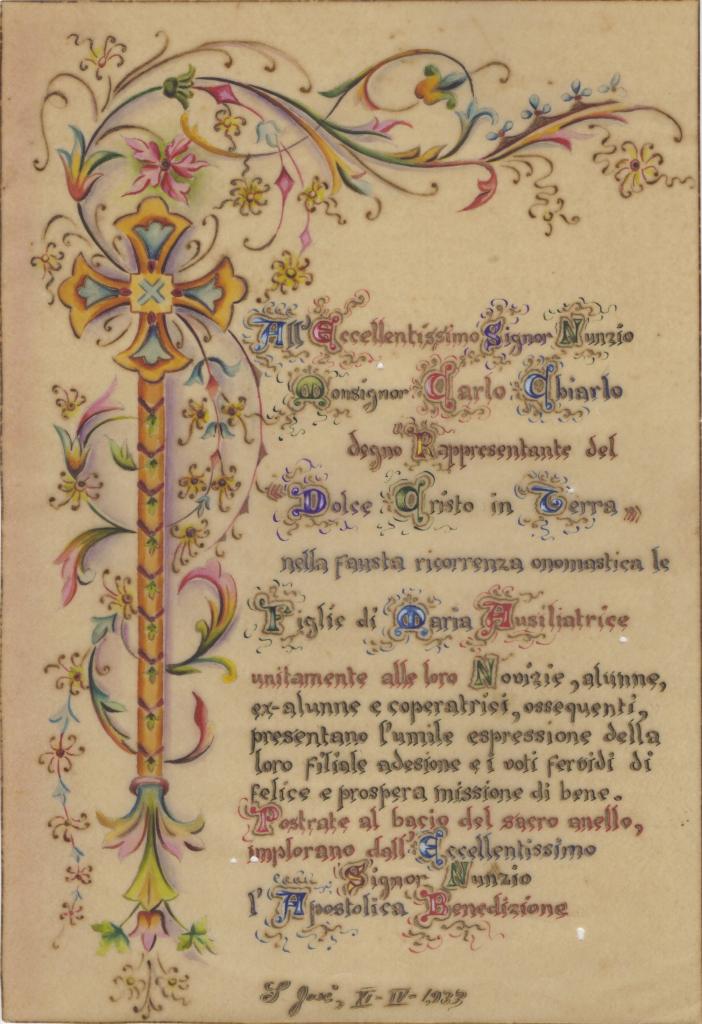 All'Eccellentissimo Signor Nunzio
Monsignor Carlo Chiarlo
degno Rappresentante del
"Dolce Cristo in Terra"
nella fausta ricorrenza onomastica le
Figlie di Maria Ausiliatrice
unitamente alle loro Novizie, alunne,
ex-alunne e coperatrici, ossequenti,
presentano l'umile espressione della
loro filiale adesione e i voti fervidi di
felice e prospera missione di bene.
Postrate al bacio del sacro anello,
implorano dall'Eccellentissimo
Signor Nunzio
l'Apostolica Benedizione
S. José, XI-IV-1933